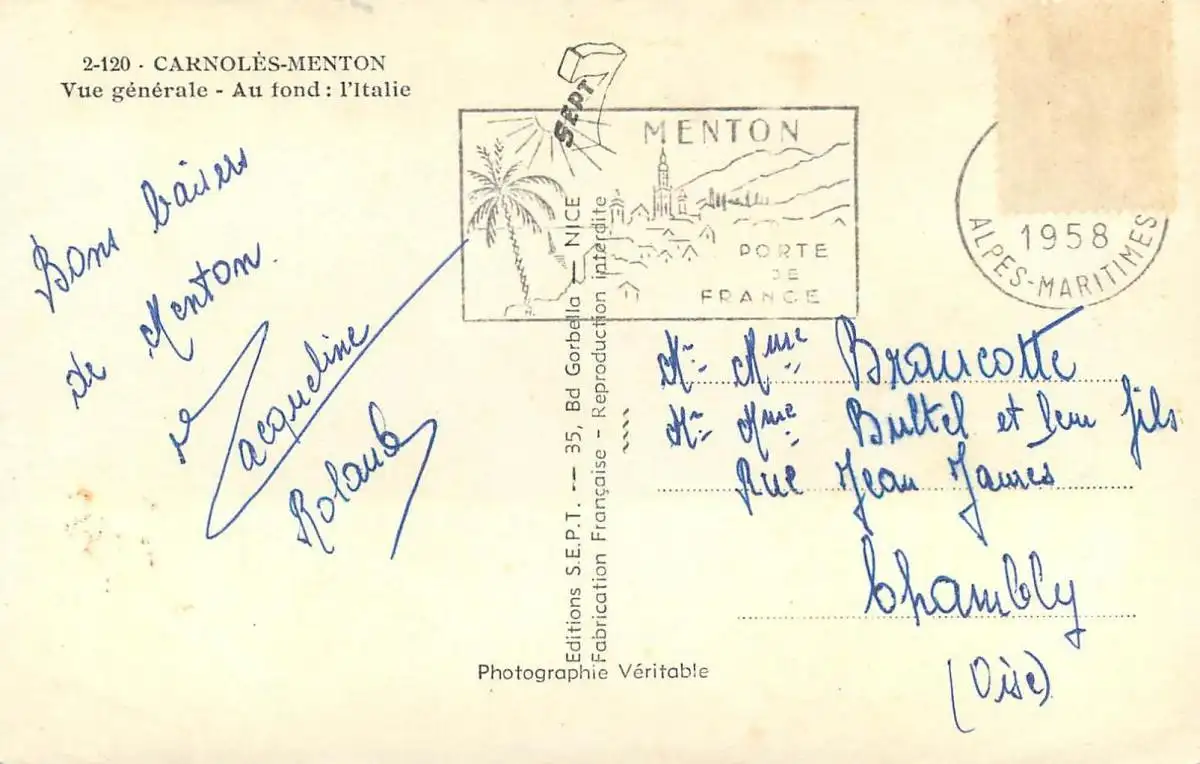 2-120 - CARNOLÈS-MENTON
Vue générale - Au fond : l'Italie
SEPT
MENTON
PORTE
DE
FRANCE
1958
ALPES-MARITIMES
Bons baisers
de Menton.
Jacqueline
Roland
Editions S.E.P.T. -- 35, Bd Gorbella - NICE
Fabrication Française - Reproduction interdite
Photographie Véritable
Mr Mme Braucotte
Mr Mme Bultel et leur fils
Rue Jean Jaures
Chambly
(Oise)